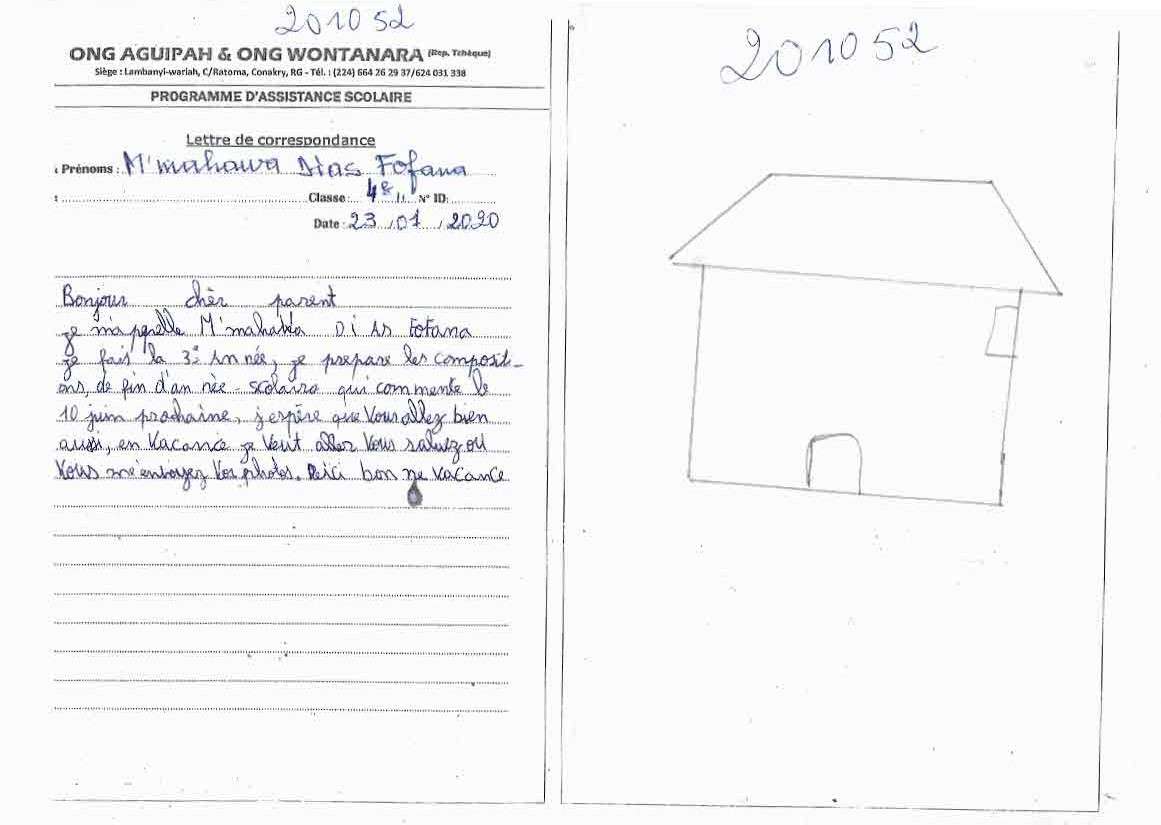 201052
ONG AGUIPAH & ONG WONTANARA (Rep. Tchèque)
Siège : Lambanyi-wariah, C/Ratoma, Conakry, RG - Tél. : (224) 664 26 29 37/624 031 338
PROGRAMME D'ASSISTANCE SCOLAIRE
Lettre de correspondance
Prénoms : M'mahawa Dias Fofana
Classe : 4è N° ID:
Date : 23 / 01 / 2020
Bonjour chèr parent
je m'apnelle M'mahawa Di As Fofana
je fais la 3è Année, je prepare les composit-
ons, de fin d'an née - scolaire qui commente le
10 juin prochaine, j'espère que Vous allez bien
aussi, en Vacance je Veut aller Vous saluez ou
Vous me'enboyez Vos photos. bon ne vacance
201052